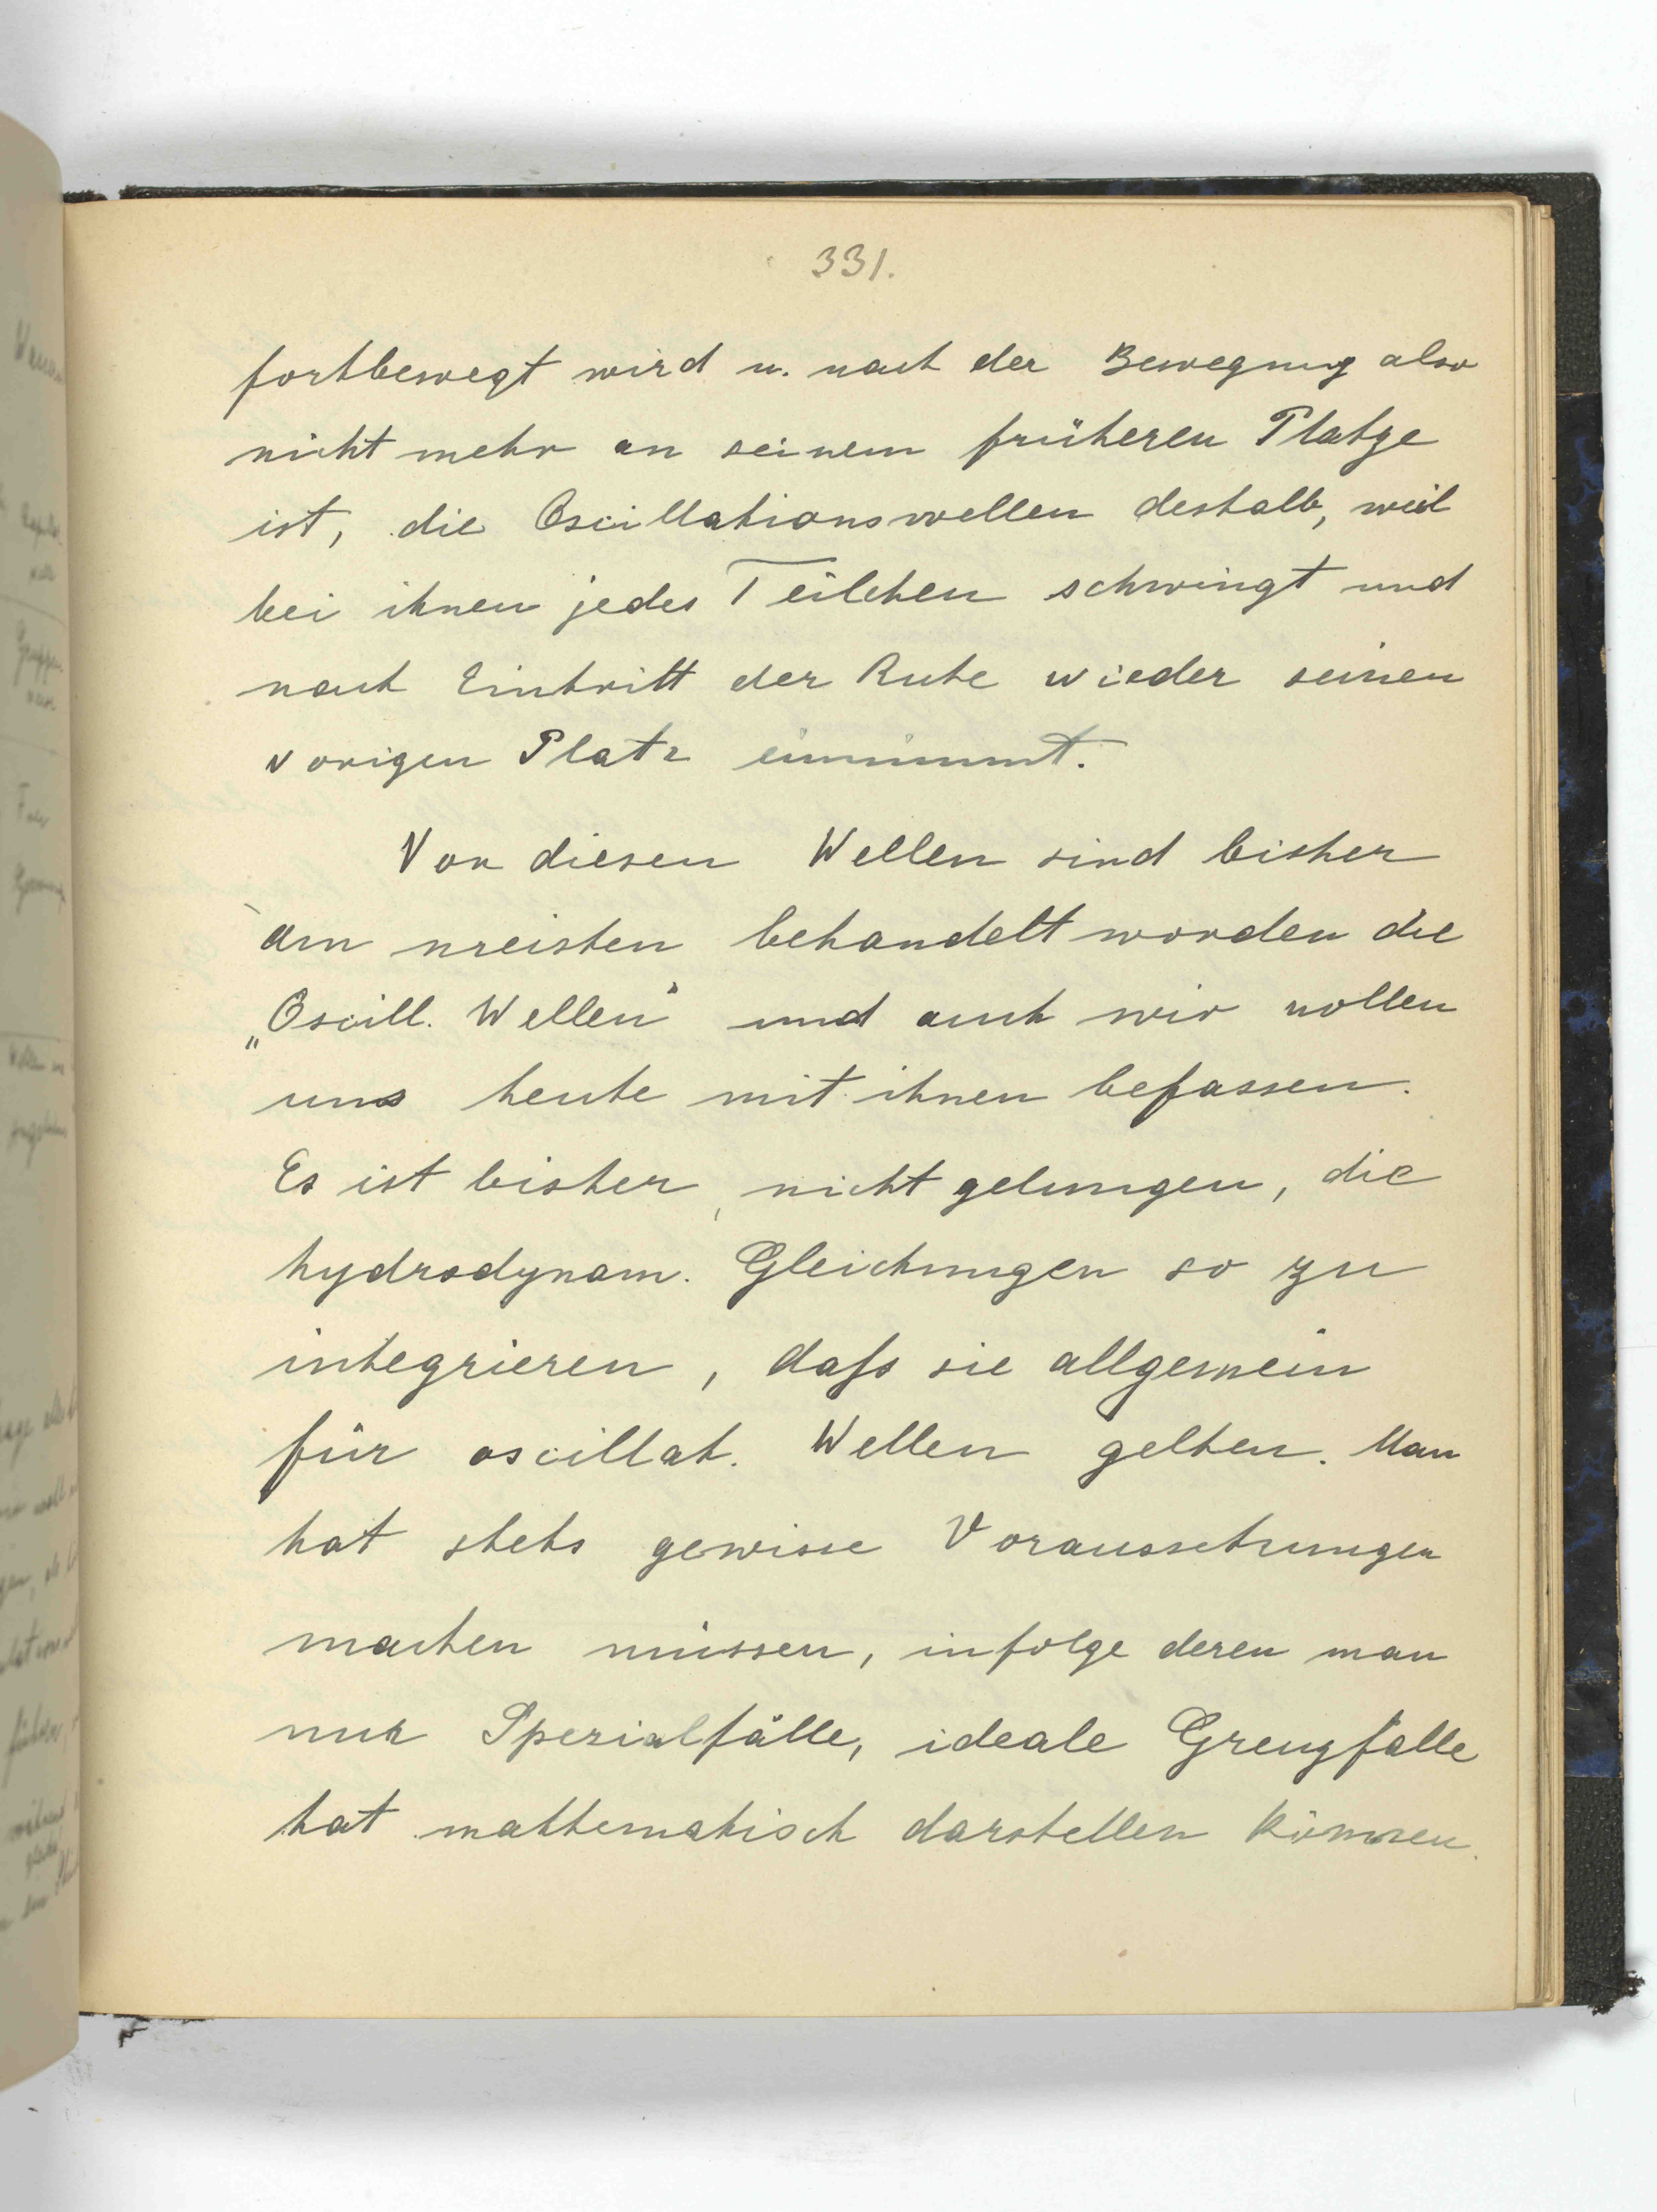 331.
fortbewegt wird u. nach der Bewegung also
nicht mehr an seinem früheren Platze
ist, die Oscillationswellen deshalb, weil
bei ihnen jedes Teilchen schwingt und
nach Eintritt der Ruhe wieder seinen
vorigen Platz einnimmt.
Von diesen Wellen sind bisher
am meisten behandelt worden die
„Oscill. Wellen" und auch wir wollen
uns heute mit ihnen befassen.
Es ist bisher, nicht gelungen, die
hydrodynam. Gleichungen so zu
integrieren, daß sie allgemein
für oscillat. Wellen gelten. Man
hat stets gewisse Voraussetzungen
machen müssen, infolge deren man
nur Spezialfälle, ideale Grenzfälle
hat mathematisch darstellen können.